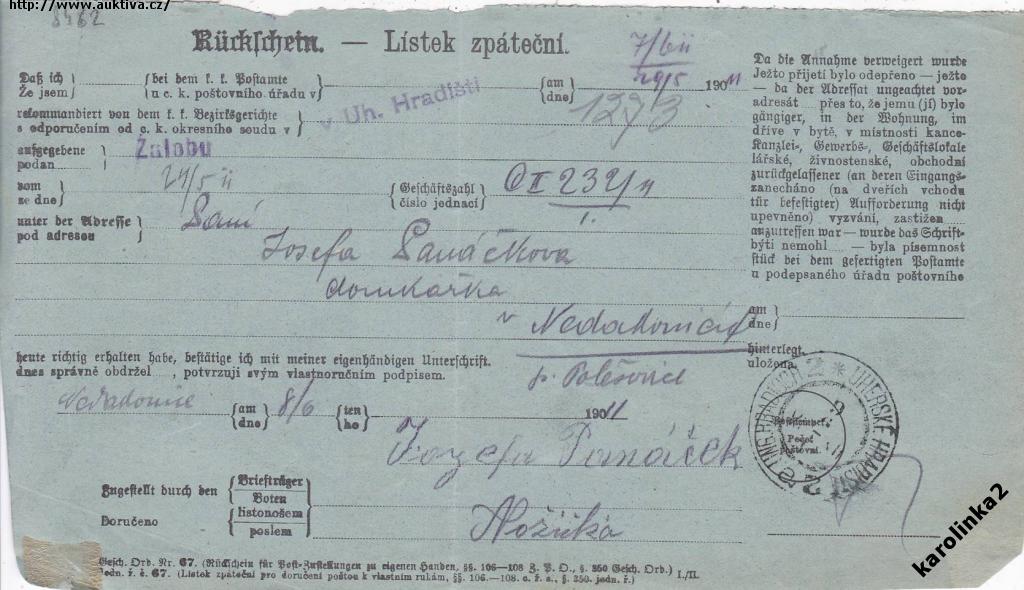 http://www.auktiva.cz/
8462
Rückschein. — Lístek zpáteční.
7/6 11
Daß ich } bei dem k. k. Postamte } am } 29/5 1901 11
Že jsem } u c. k. poštovního úřadu v } dne }
v Uh. Hradišti
rekommandiert von dem k. k. Bezirksgerichte } 1273
s odporučením od c. k. okresního soudu v }
aufgegebene } Žalobu
podan }
vom } 24/5 11 Geschäftszahl } C II 232/11
ze dne } číslo jednací } 1.
unter der Adresse } Paní
pod adresou }
Josefa Panáčkova
domkařka
v Nedakonicích
p. Polešovice
heute richtig erhalten habe, bestätige ich mit meiner eigenhändigen Unterschrift.
dnes správně obdržel , potvrzuji svým vlastnoručním podpisem.
Nedakonice am } 8/6 ten } 1901 11
dne } ho }
Jozefa Panáček
Zugestellt durch den { Briefträger
Boten
Doručeno { listonošem
poslem
Da die Annahme verweigert wurde
Ježto přijetí bylo odepřeno — ježto
— da der Adressat ungeachtet vor-
adresát přes to, že jemu (jí) bylo
gängiger, in der Wohnung, im
dříve v bytě, v místnosti kance-
Kanzlei-, Gewerbs-, Geschäftslokale
lářské, živnostenské, obchodní
zurückgelassener (an deren Eingang
zanecháno (na dveřích vchodu
tür befestigter) Aufforderung nicht
upevněno) vyzvání, zastižen
anzutreffen war — wurde das Schrift-
býti nemohl — byla písemnost
stück bei dem gefertigten Postamte
u podepsaného úřadu poštovního
am }
dne }
hinterlegt.
uložena.
UNG. HRADISCH 2 * UHERSKÉ HRADIŠTĚ 2
Poststempel.
Pečeť
poštovní.
Gesch. Ord. Nr. 67. (Rückschein für Post-Zustellungen zu eigenen Handen, §§. 106—108 Z. P. O., § 350 Gesch. Ord.)
Jedn. ř. č. 67. (Lístek zpáteční pro doručení poštou k vlastním rukám, §§. 106.—108. c. ř. s., §. 350. jedn. ř.) I./II.
karolinka2